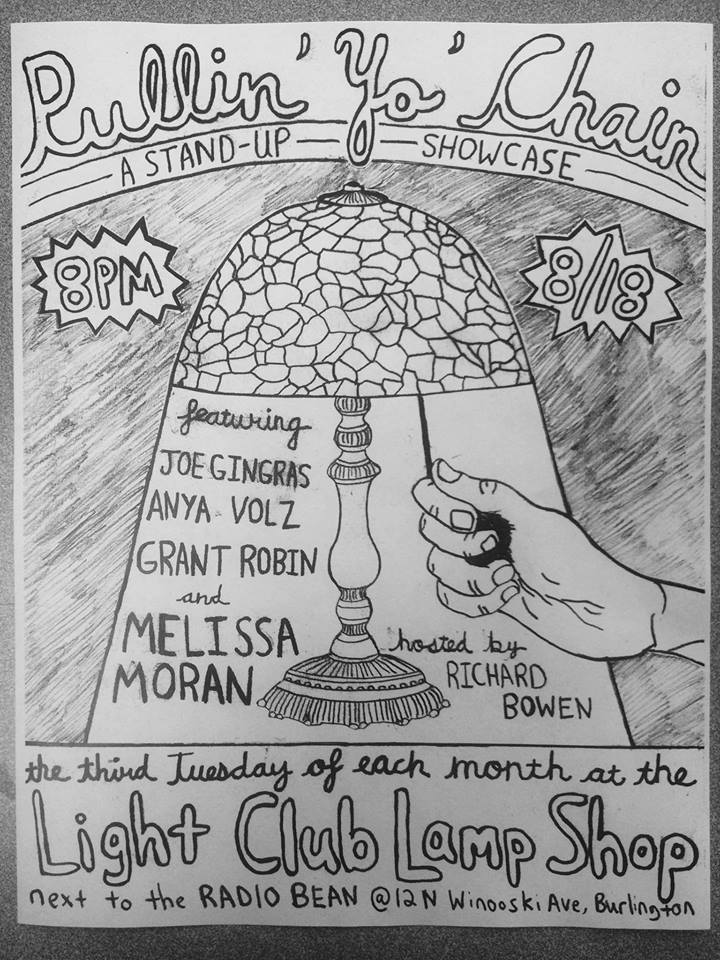 Pullin' Yo' Chain
A STAND-UP SHOWCASE
8PM
8/18
featuring
JOE GINGRAS
ANYA VOLZ
GRANT ROBIN
and
MELISSA
MORAN
hosted by
RICHARD
BOWEN
the third Tuesday of each month at the
Light Club Lamp Shop
next to the RADIO BEAN @12 N Winooski Ave, Burlington